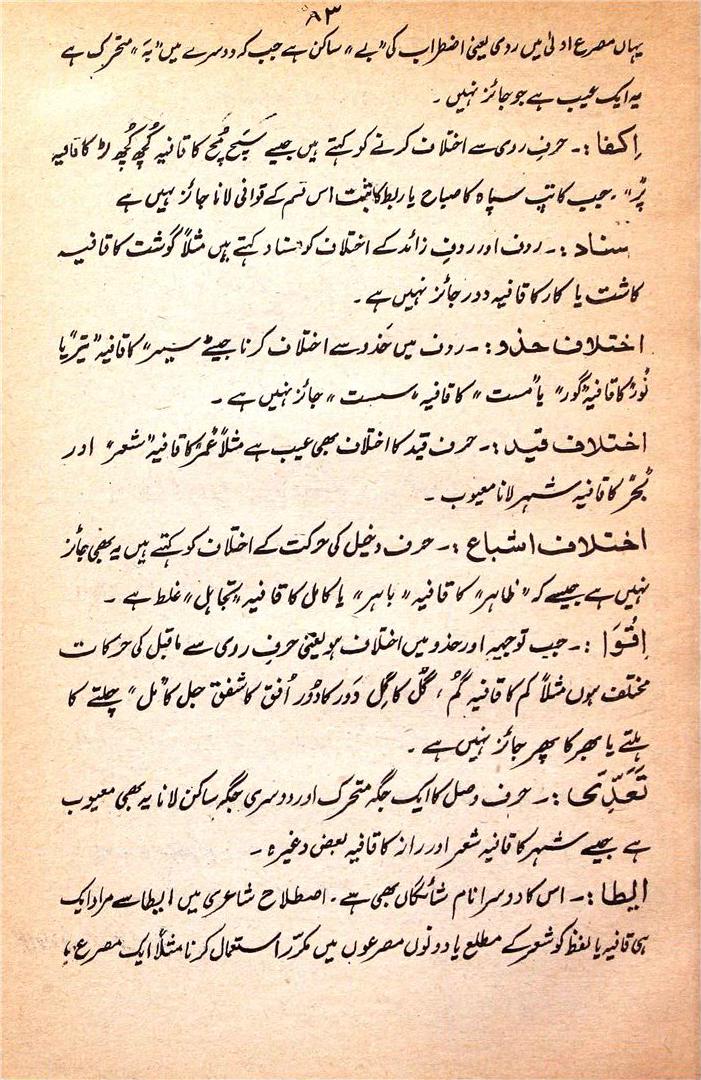 ۸۳
یہاں مصرع اولیٰ میں روی یعنی اضطراب کی "بے" ساکن ہے جب کہ دوسرے میں "بَہ" متحرک ہے
یہ ایک عیب ہے جو جائز نہیں ۔
اِکفا :۔ حرفِ روی سے اختلاف کرنے کو کہتے ہیں جیسے سَبح مُچ کا قافیہ کُچھ کُچھ لڑ کا قافیہ
پَڑ" ۔ جب کاتب سپاہ کا صباح یا ربط کا ثبت اس قسم کے قوافی لانا جائز نہیں ہے
سناد :۔ ردف اور ردفِ زائد کے اختلاف کو سناد کہتے ہیں مثلاً گوشت کا قافیہ
کاشت یا کار کا قافیہ دور جائز نہیں ہے ۔
اختلاف حذو :۔ ردف میں حَذو سے اختلاف کرنا جیسے سیر" کا قافیہ "تیر" یا
نُور" کا قافیہ "گور" یا "مست" کا قافیہ "سست" جائز نہیں ہے ۔
اختلاف قید :۔ حرف قید کا اختلاف بھی عیب ہے مثلاً عُمر کا قافیہ "شعر" اور
بحر کا قافیہ شہر لانا معیوب ۔
اختلاف اشباع :۔ حرف دخیل کی حرکت کے اختلاف کو کہتے ہیں یہ بھی جائز
نہیں ہے جیسے کہ "ظاہر" کا قافیہ "باہر" یا کامل کا قافیہ "تجاہل" غلط ہے ۔
اِقْوَا :۔ جب توجیہہ اور حذو میں اختلاف ہو یعنی حرفِ روی سے ماقبل کی حرکات
مختلف ہوں مثلاً کم کا قافیہ گُم ، گُل کا گِل دَور کا دُور اُفق کا شفق جل کا "مل" چلتے کا
ہلتے یا بھر کا پھر جائز نہیں ہے ۔
تَعَدِّی :۔ حرف وصل کا ایک جگہ متحرک اور دوسری جگہ ساکن لانا یہ بھی معیوب
ہے جیسے شہر کا قافیہ شعر اور راز کا قافیہ بعض وغیرہ ۔
ایطا :۔ اس کا دوسرا نام شائگاں بھی ہے ۔ اصطلاح شاعری میں ایطا سے مراد ایک
ہی قافیہ یا لفظ کو شعر کے مطلع یا دونوں مصرعوں میں مکرّر استعمال کرنا مثلاً ایک مصرع